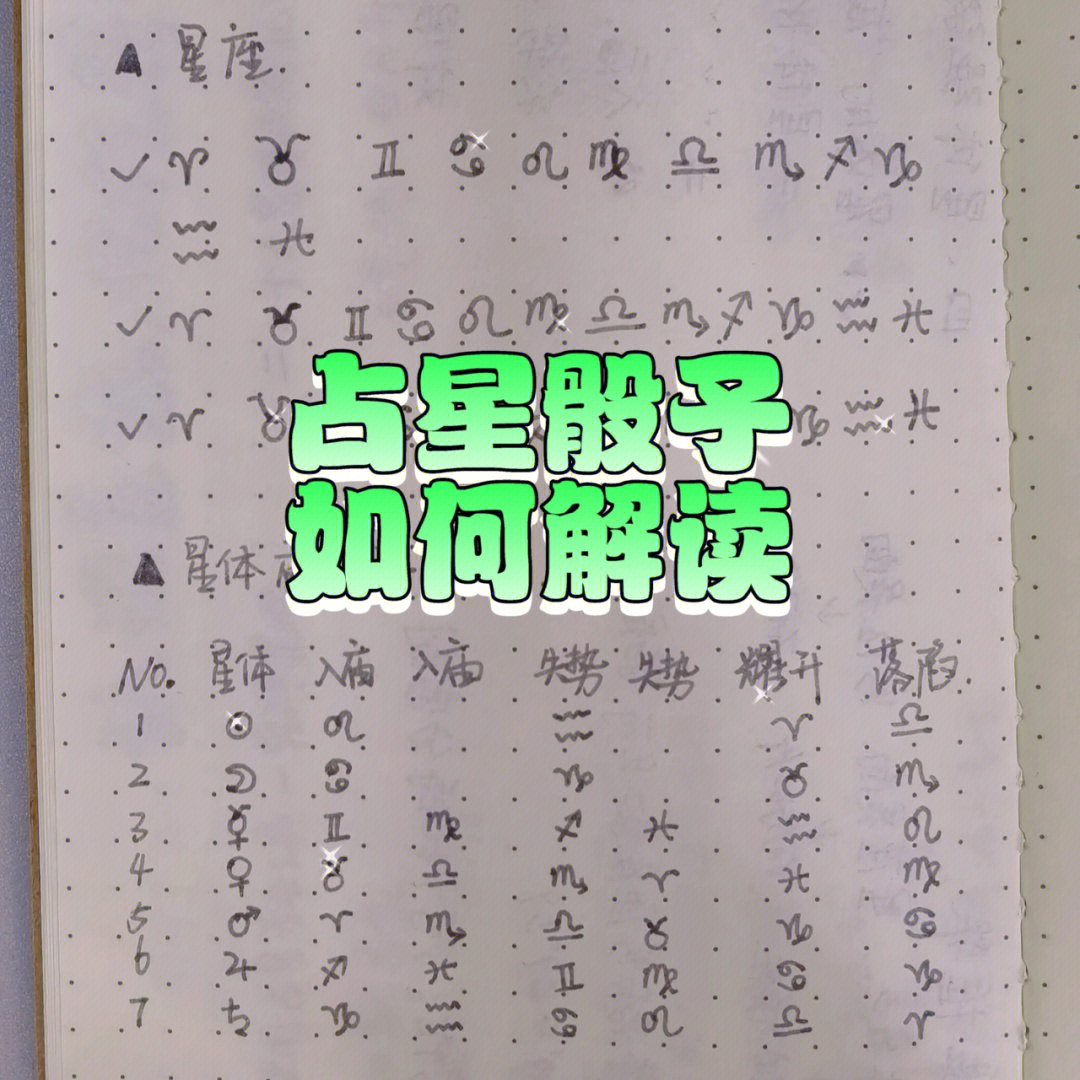 ▲ 星座.
✓ ♈ ♉ ♊ ♋ ♌ ♍ ♎ ♏ ♐ ♑
♒ ♓
✓ ♈ ♉ ♊ ♋ ♌ ♍ ♎ ♏ ♐ ♑ ♒ ♓
✓ ♈ ♉ ♑ ♒ ♓
占星骰子
如何解读
▲ 星体
No. 星体 入庙 入庙 失势 失势 耀升 落陷
1 ☉ ♌ ♒ ♈ ♎
2 ☽ ♋ ♑ ♉ ♏
3 ☿ ♊ ♍ ♐ ♓ ♒ ♌
4 ♀ ♉ ♎ ♏ ♈ ♓ ♍
5 ♂ ♈ ♏ ♎ ♉ ♑ ♋
6 ♃ ♐ ♓ ♊ ♍ ♋ ♑
7 ♄ ♑ ♒ ♋ ♌ ♎ ♈